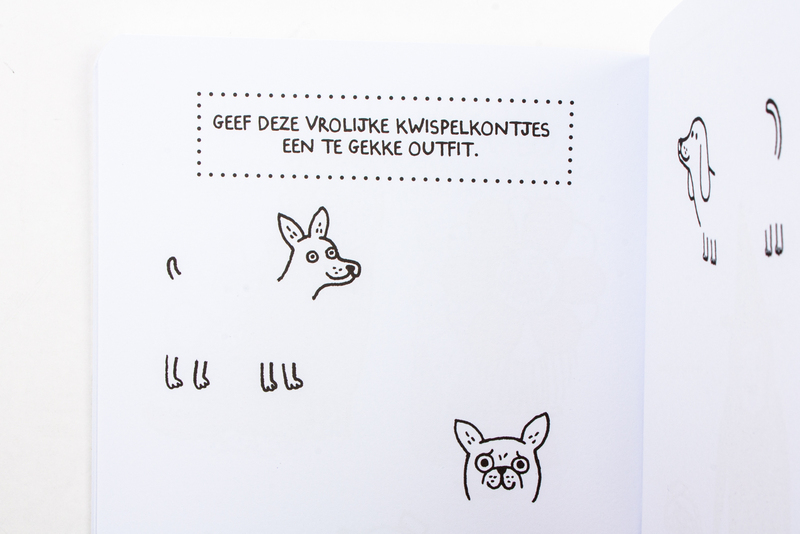 GEEF DEZE VROLIJKE KWISPELKONTJES
EEN TE GEKKE OUTFIT.